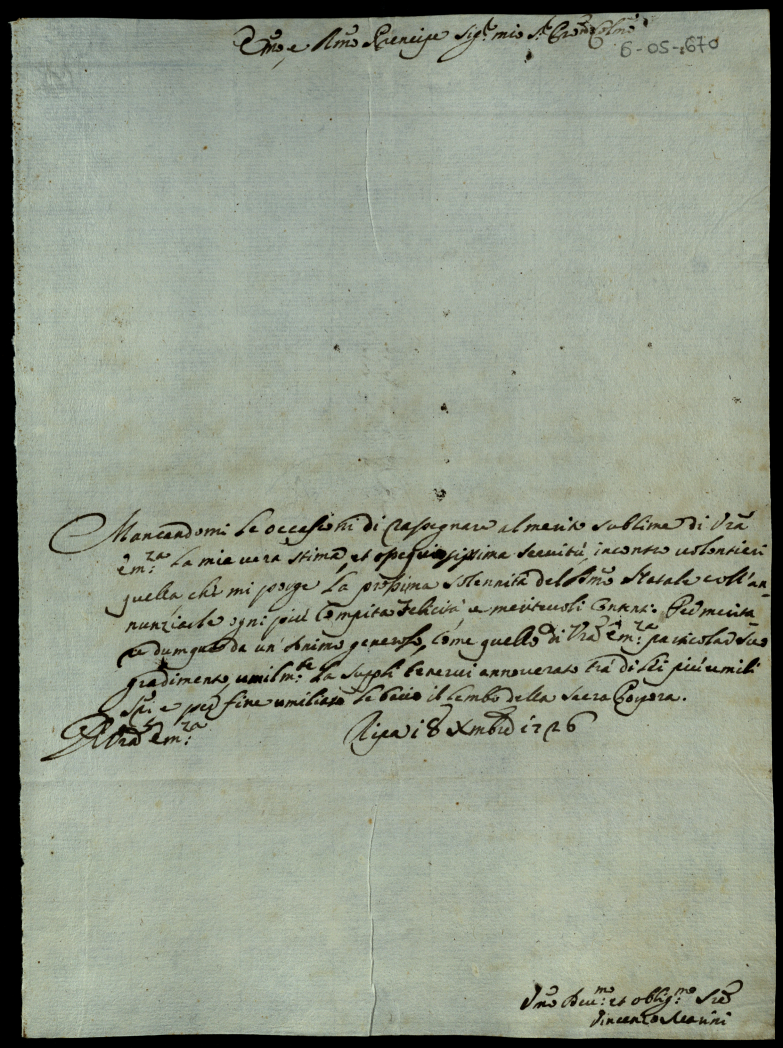 Emo, e Rmo Prencipe Sigr mio Sr Pron Colmo
6-05-1670
Mancandomi le occasioni di rassegnare al merito sublime di Vra
Em:za la mia vera stima, et ossequiosissima servitù, incontro volontieri
quella che mi porge la prossima solennità del Smo Natale coll'an-
nunziarle ogni più compita felicità e meritevoli contenti. Per merita
re dunque da un' Animo generoso, come quello di Vra Em:za particolar suo
gradimento, umilmte la suppli tenerui annoverato trà di Lei più umili
Sri e per fine umiliato le bacio il lembo della Sacra Porpora.
D Vra Em:za Ripa i8 Xmbre 1726
Vmo Deu:mo et oblig:mo Sre
Vincenzo Marini